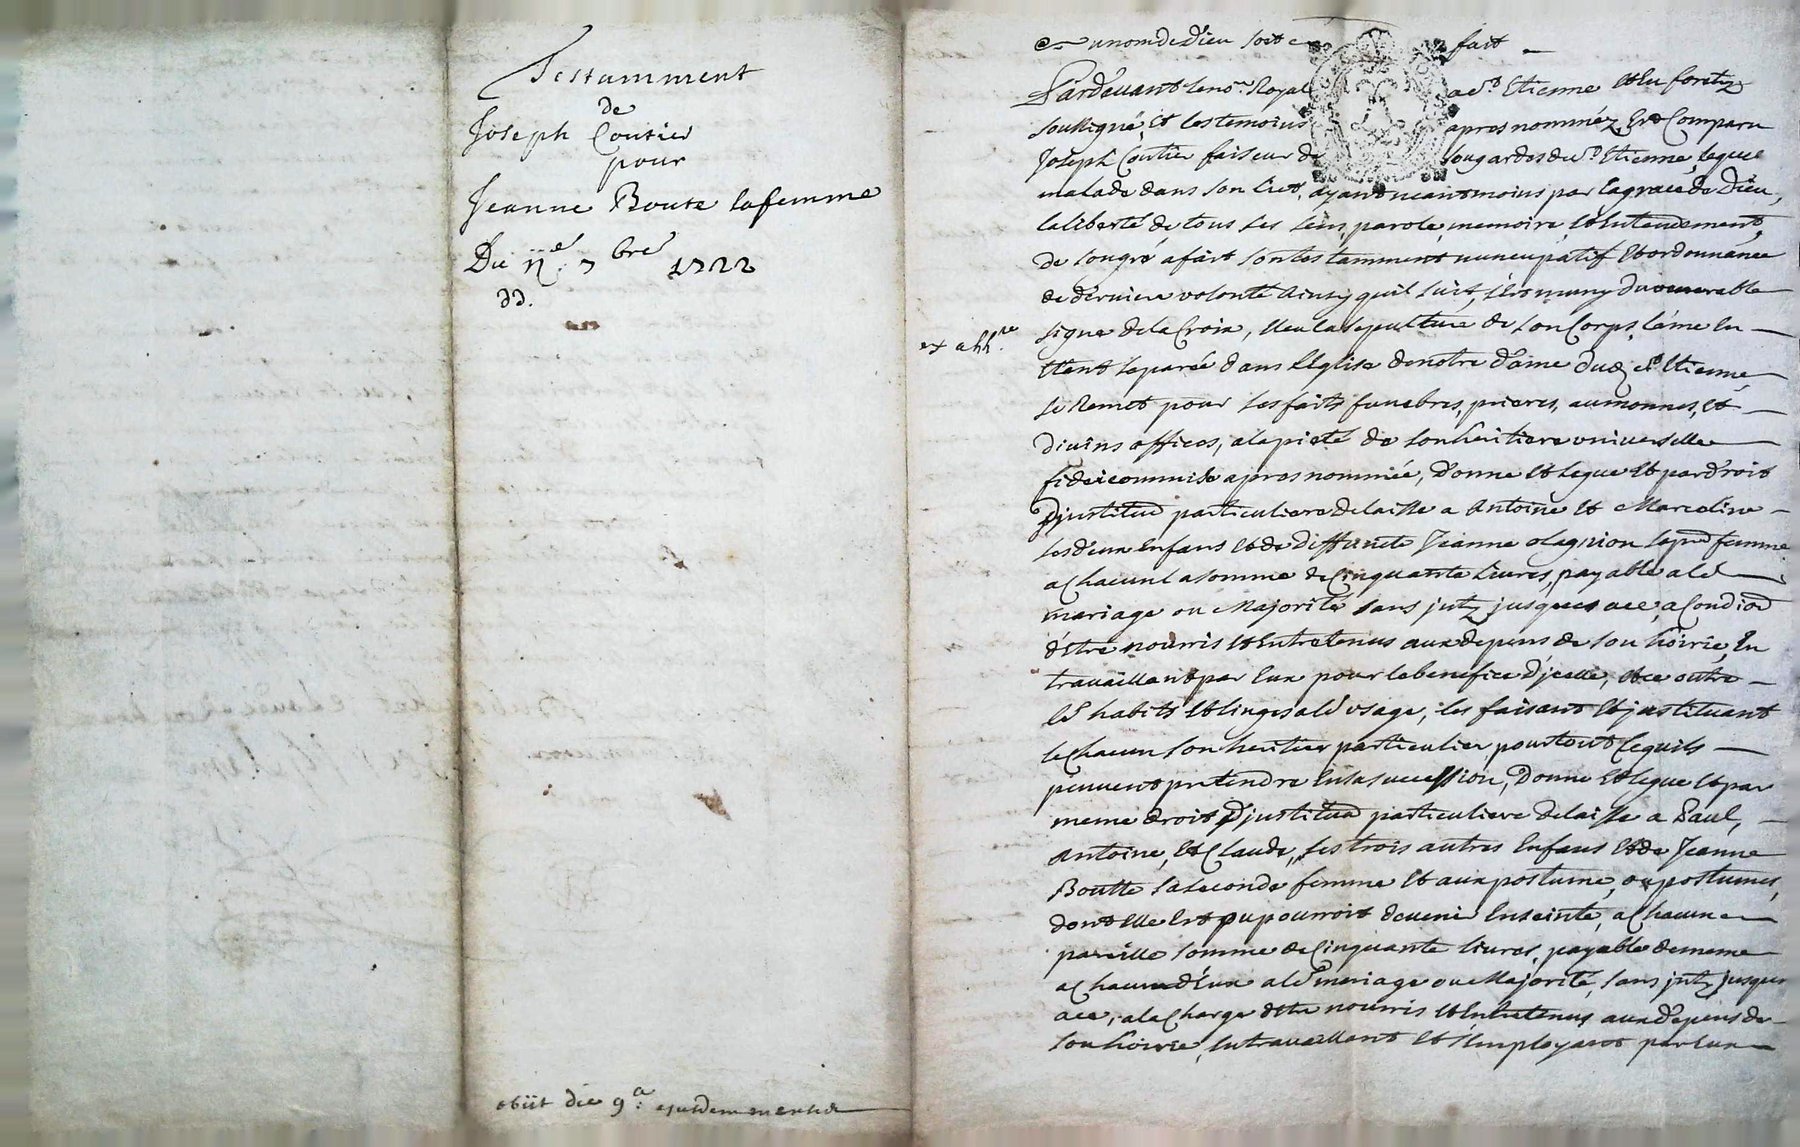 Testamment
de
Joseph Coutier
pour
Jeanne Boute sa femme
Du 11e. 7bre 1722
obiit die 9a: ejusdem mensis
Au nom de Dieu soit fait
Pardevant le nore. Royal a St Etienne et en foretz
soussigné, et les temoins apres nomméz, Est Comparu
Joseph Coutier faiseur de sougardes dud St Etienne, lequel
malade dans son lict, ayant neantmoins par la grace de Dieu,
la liberté de tous ses sens, parole, memoire, et Entendement,
de son gré a fait son testamment nuncupatif et ordonnance
de derniere volonté Ainsy quil suit, s'est muny du venerable
signe de la Croix, Eleu la sepulture de son Corps, l'ame En
Etant separée dans l'Eglise de notre dame dud St Etienne,
se Remet pour ses faits funebres, prieres, aumonnes, et
divins offices, a la pieté de son heritiere universelle
fideicommise apres nommée, Donne et legue et par droit
d'jnstituon particuliere delaisse a Antoine et Marceline
ses deux Enfans et de deffuncte Jeanne sa pre femme
a Chacun la somme de Cinquante livres, payable a lr
mariage ou Majorité sans jntz jusques a ce, a Condion
d'être nourris et Entretenus aux depens de son hoirie, En
travaillant par Eux pour le benefice d'jcelle, et ce outre
lrs habits et linges a lr usage, les faisant et jnstituant
le Chacun son heritier particulier pour tout Ce quils
peuvent pretendre En sa succession, Donne et legue et par
meme droit d'jnstituon particuliere delaisse a Paul,
Antoine, et Claude, ses trois autres Enfans et de Jeanne
Boutte sa seconde femme et aux postume, ou postumes,
dont Elle Est ou pourroit devenir Enceinte, a Chacun
pareille somme de Cinquante livres, payable de meme
a Chacun d'Eux a lr mariage ou Majorité, sans jntz jusques
a ce, a la Charge d'etre nourris et Entretenus aux depens de
son hoirie, En travaillant et s'Employant par Eux